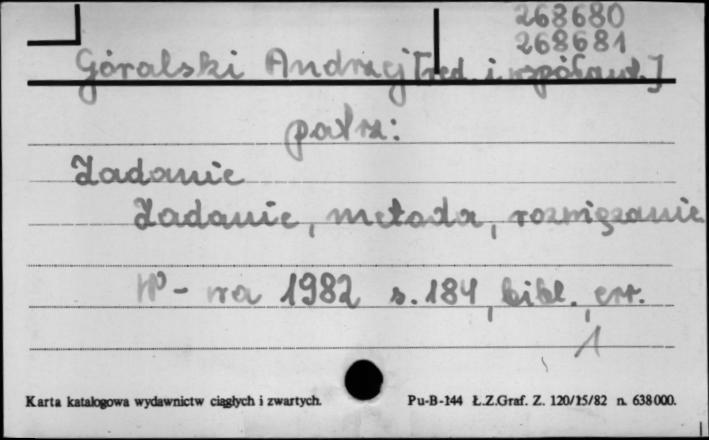 268680
268681
Góralski Andrzej [red. i współaut.]
patrz:
Zadanie
Zadanie, metoda, rozwiązanie
W-wa 1982 s. 184, bibl., err.
1
Karta katalogowa wydawnictw ciągłych i zwartych. Pu-B-144 Ł.Z.Graf. Z. 120/15/82 n. 638000.